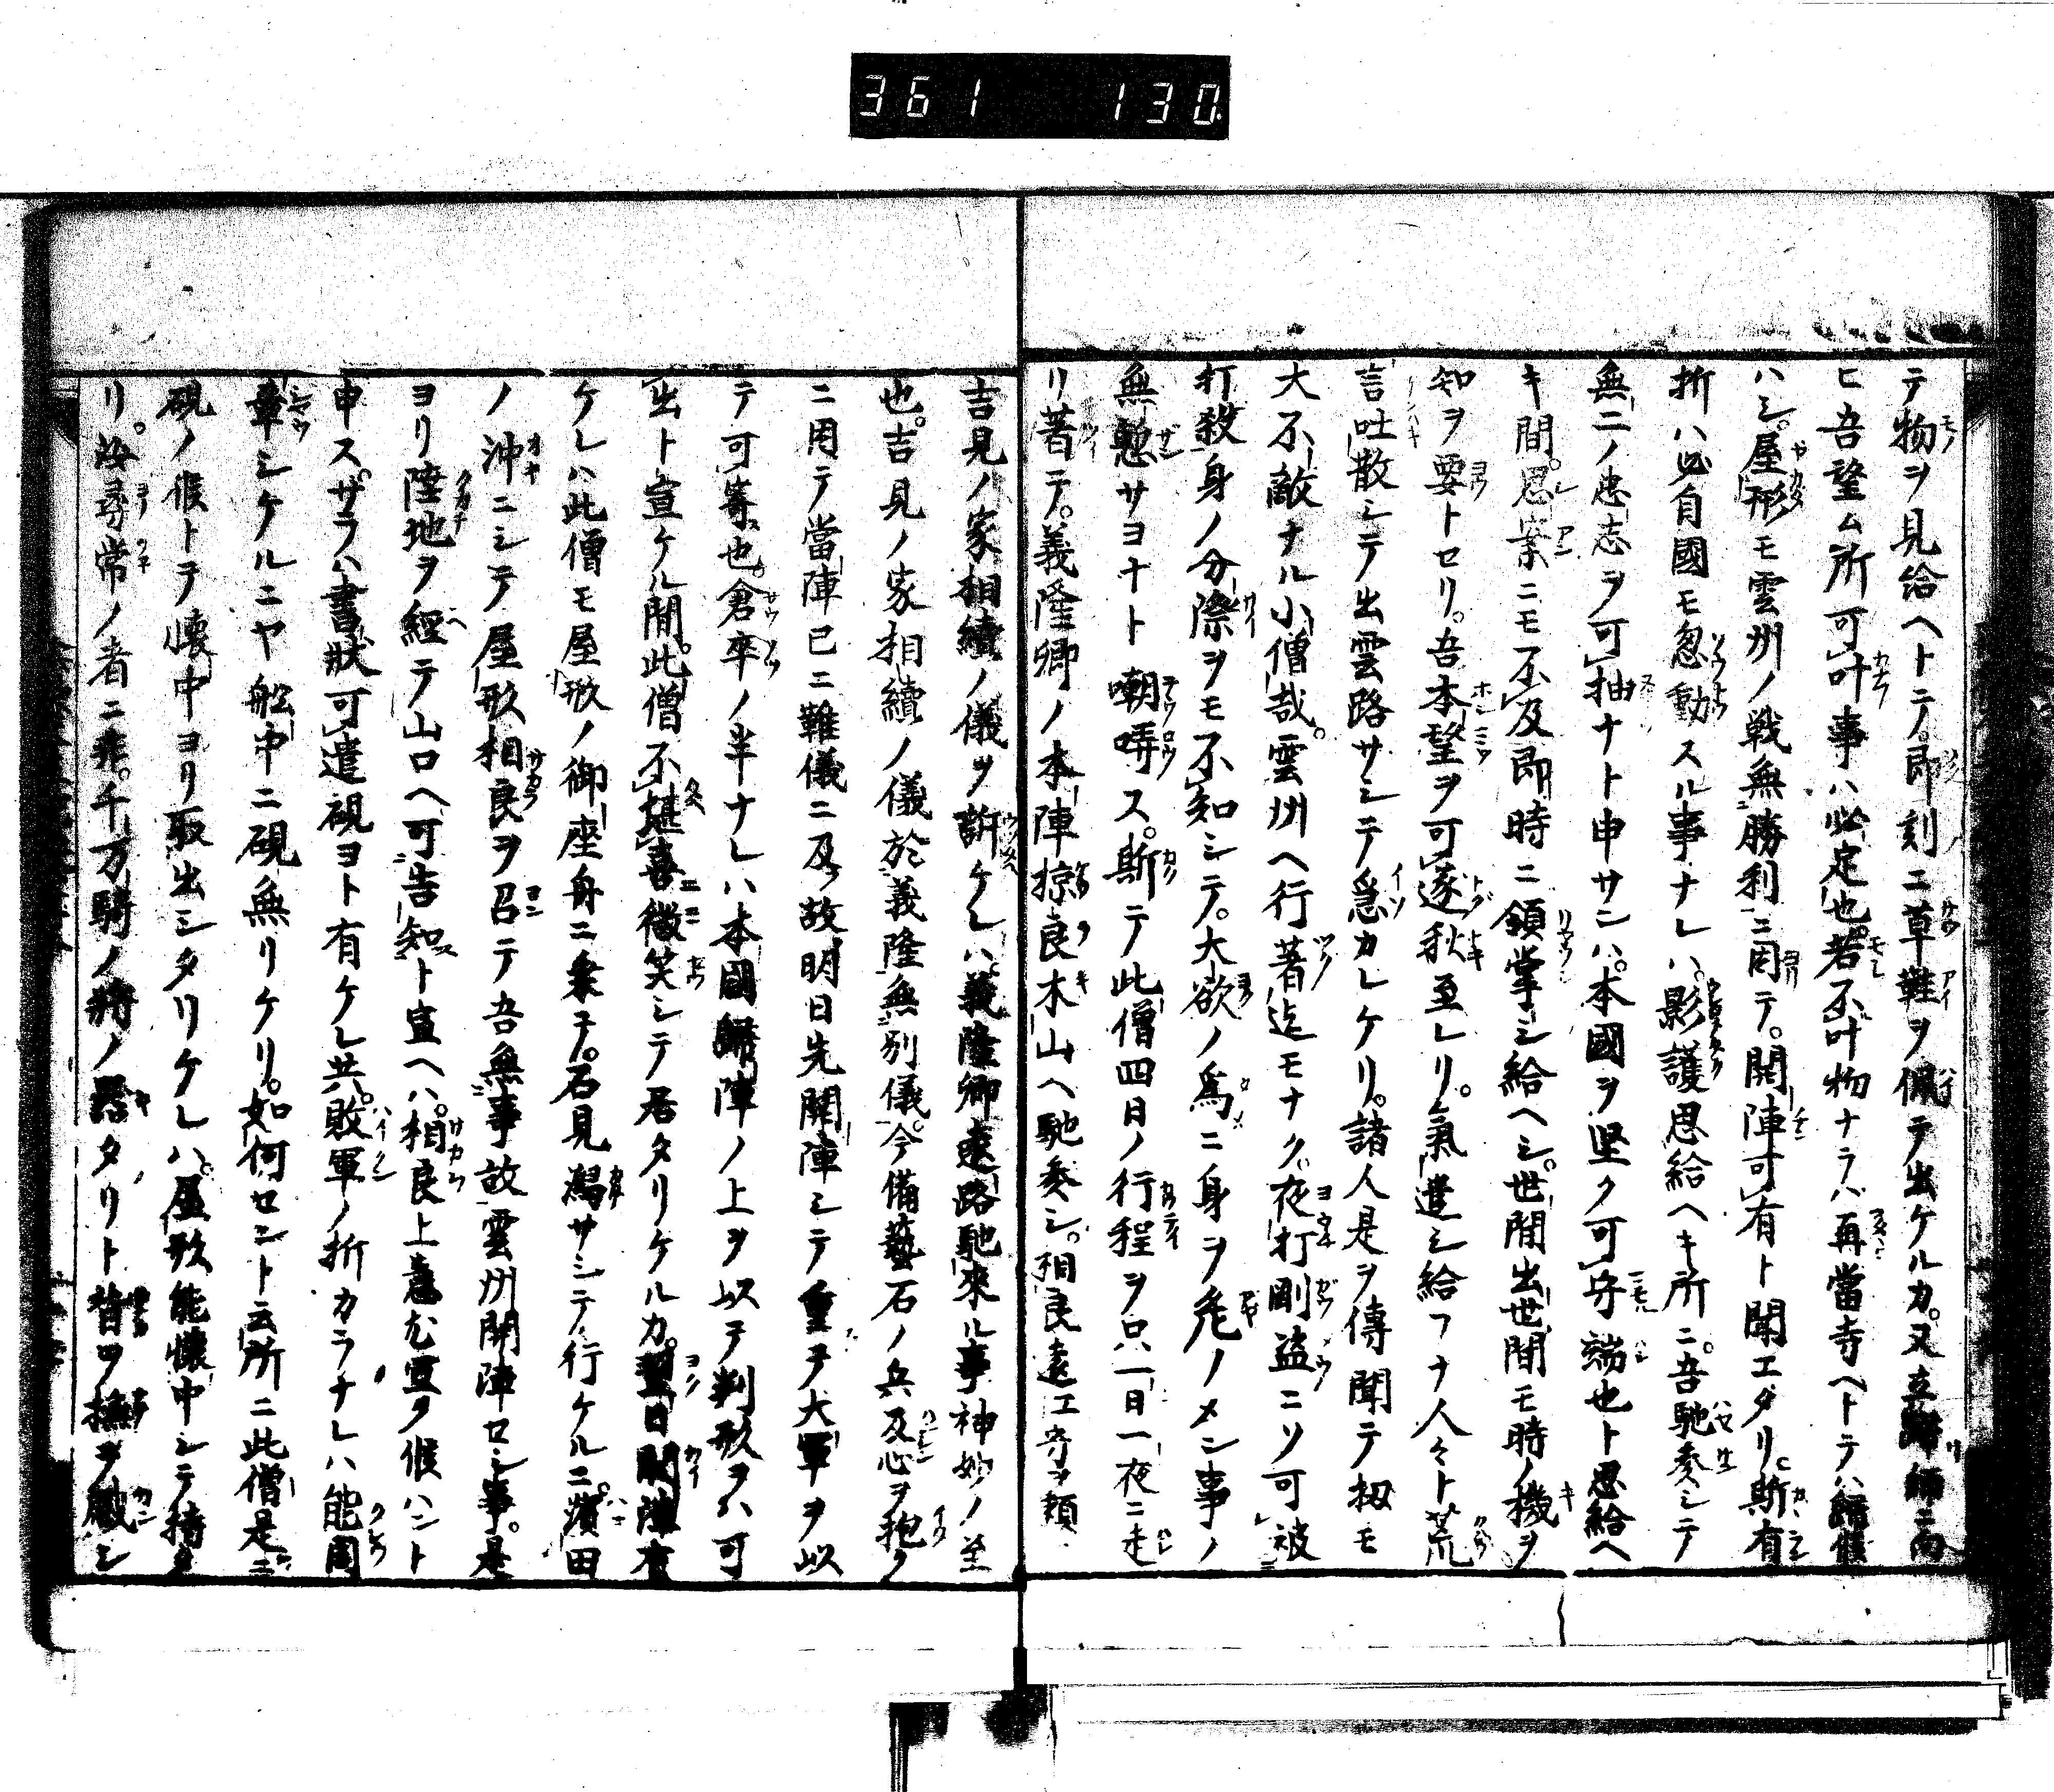 361 130
テ物ヲ見給ヘトテ。即刻ニ草鞋ヲ佩テ出ケルカ。又立歸師ニ向
ヒ吾望ム所可叶事ハ必定也。若不叶物ナラバ再當寺ヘトテハ歸候
ハシ。屋形モ雲州ノ戦無勝利ニ因テ。開陣可有ト聞エタリ。斯有
折ハ必自國モ忽動スル事ナレハ。影護思給ヘキ所ニ。吾馳参シテ
無二ノ忠志ヲ可抽ナト申サンハ。本國ヲ堅ク可守端也ト思給ヘ
キ間。思案ニモ不及即時ニ領掌シ給ヘシ。世間出世間モ時ノ機ヲ
知ヲ要トセリ。吾本望ヲ可遂秋至レリ。氣遣シ給フナ人々ト荒
言吐散シテ出雲路サシテ急カレケリ。諸人是ヲ傳聞テ扨モ
大不敵ナル小僧哉。雲州ヘ行著迄モナク。夜打剛盗ニソ可被
打殺身ノ分際ヲモ不知シテ。大欲ノ為ニ身ヲ危ノメン事ノ
無慙サヨナト嘲哢ス。斯テ此僧四日ノ行程ヲ只一日一夜ニ走
リ著テ。義隆卿ノ本陣掠良木山ヘ馳参シ。相良遠江守ヲ頼
吉見ノ家相續ノ儀ヲ訴ケレハ。義隆卿遠路馳來ル事神妙ノ至
也。吉見ノ家相續ノ儀於義隆無別儀。今備藝石ノ兵及心ヲ抱ク
ニ因テ當陣已ニ難儀ニ及故明日先開陣シテ重テ大軍ヲ以
テ可寄也。倉卒ノ半ナレハ本國歸陣ノ上ヲ以テ判形ヲハ可
出ト宣ケル間。此僧不堪喜微笑シテ居タリケルカ。翌日開陣有
ケレハ此僧モ屋形ノ御座舟ニ乗テ。石見潟サシテ行ケルニ。濱田
ノ沖ニシテ屋形相良ヲ召テ吾無事故雲州開陣セシ事。是
ヨリ陸地ヲ經テ山口ヘ可告知ト宣ヘハ。相良上意尤宜ク候ハント
申ス。サラハ書狀可遣硯ヨト有ケレ共。敗軍ノ折カラナレハ能周
章シケルニヤ舩中ニ硯無リケリ。如何セント云所ニ此僧是ニ
硯ノ候トテ懐中ヨリ取出シタリケレハ。屋形能懐中シテ持タ
リ。汝尋常ノ者ニ非。千万騎ノ将ノ器タリト背ヲ撫ヲ感シ